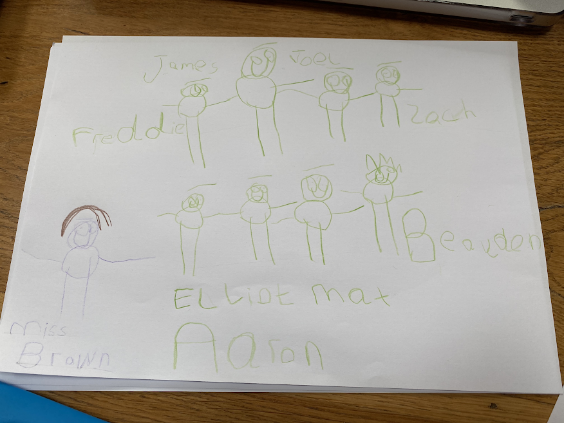 James Joel
Freddie Zach
Beauden
Elliot Max
Aaron
Miss
Brown